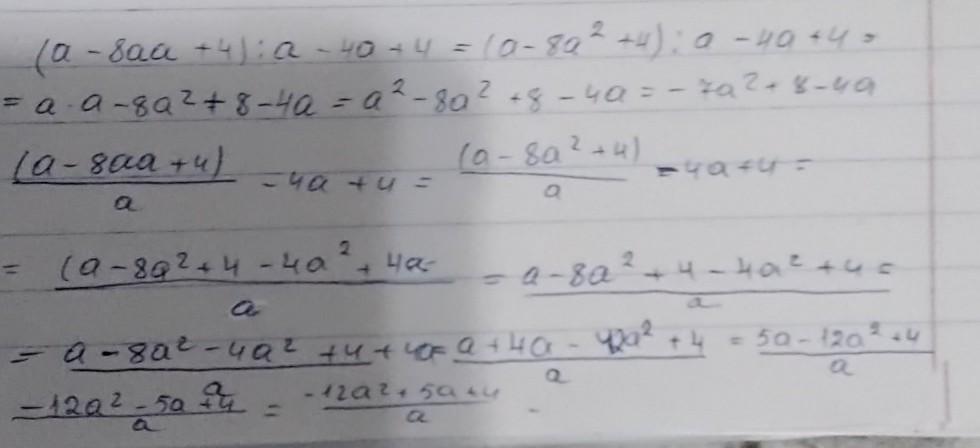 (a - 8aa + 4) : a - 4a + 4 = (a - 8a² + 4) : a - 4a + 4 =
= a · a - 8a² + 8 - 4a = a² - 8a² + 8 - 4a = - 7a² + 8 - 4a
(a - 8aa + 4)/a - 4a + 4 = (a - 8a² + 4)/a - 4a + 4 =
= (a - 8a² + 4 - 4a² + 4a/a = a - 8a² + 4 - 4a² + 4/a =
= a - 8a² - 4a² + 4 + 4a/a = a + 4a - 12a² + 4/a = 5a - 12a² + 4/a
-12a² - 5a + 4/a = -12a² + 5a + 4/a